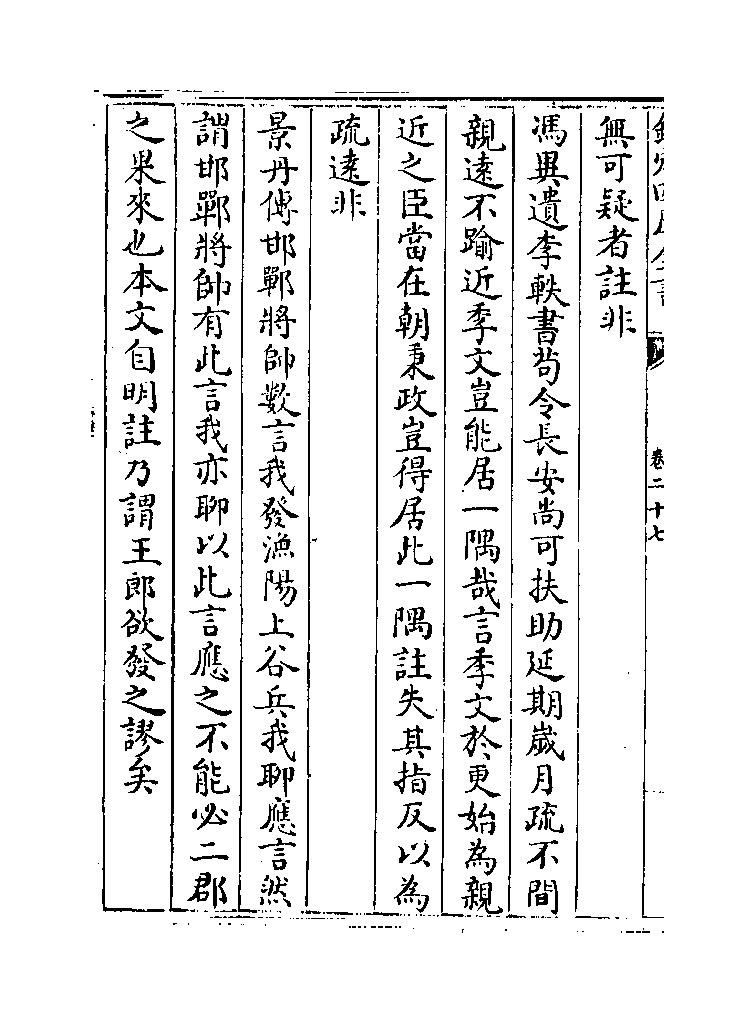 卷二十七
無可疑者註非
馮異遺李軼書茍令長安尚可扶助延期歲月疏不間
親逺不踰近季文豈能居一隅哉言季文於更始為親
近之臣當在朝秉政豈得居此一隅註失其指反以為
疏逺非
景丹傳邯鄲將帥數言我發漁陽上谷兵我聊應言然
謂邯鄲將帥有此言我亦聊以此言應之不能必二郡
之果來也本文自明註乃謂王郎欲發之謬矣